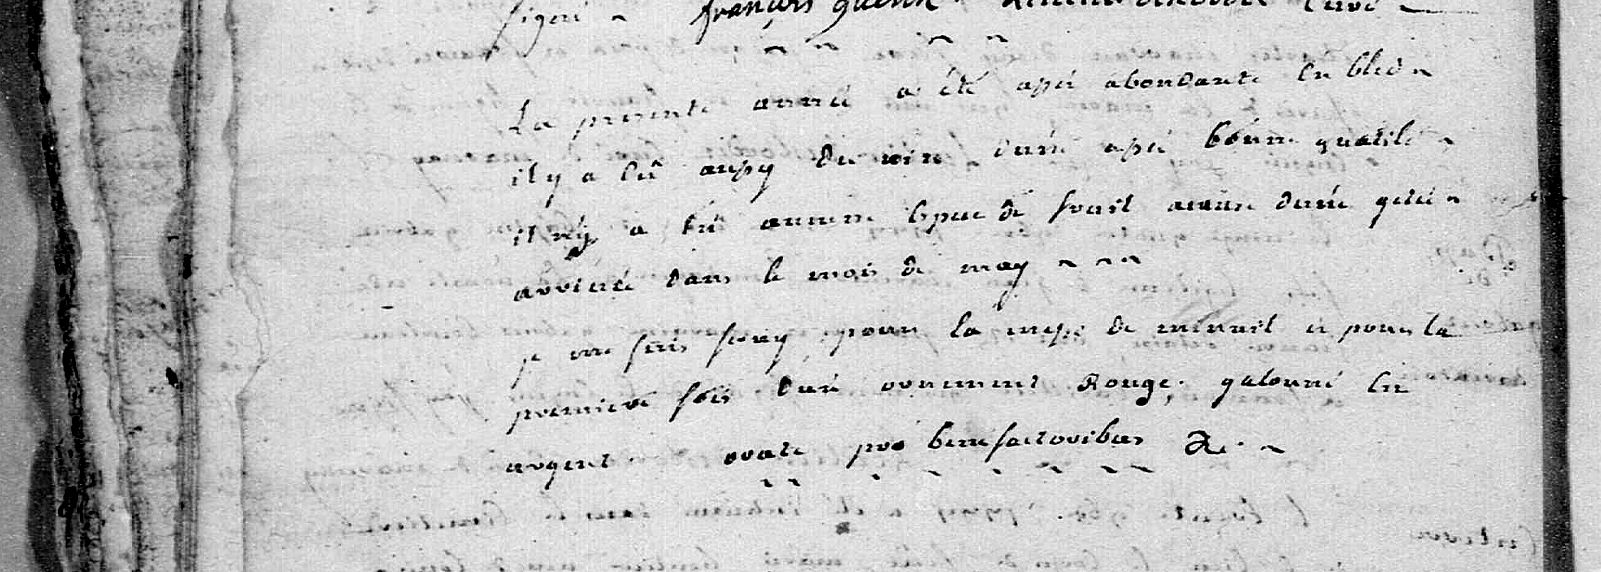 signé françois curé
La presente année a été assé abondante en bled
il y a eû aussy du vin d'une assé bonne qualité
il n'y a eû aucune espece de fruit a cause d'une gelée
arrivée dans le mois de may
je me suis servy pour la messe de minuit et pour la
premiere fois d'un ornement Rouge, galonné en
argent orate pro benefactoribus &c.